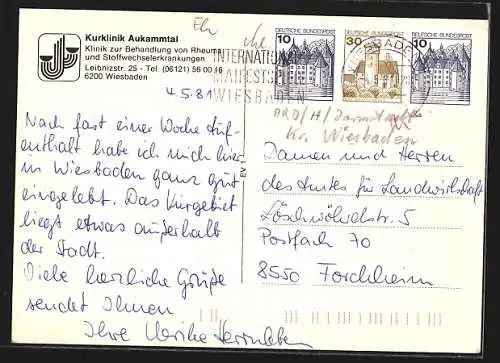 Kurklinik Aukammtal
Klinik zur Behandlung von Rheuma-
und Stoffwechselerkrankungen
Leibnizstr. 25 - Tel. (06121) 56 00 16
6200 Wiesbaden
4.5.81
Nach fast einer Woche Auf-
enthalt habe ich mich hier
in Wiesbaden ganz gut
eingelebt. Das Kurgebiet
liegt etwas außerhalb
der Stadt.
Viele herzliche Grüße
sendet Ihnen
Ihre Ulrike
INTERNATIONALE
MAIFESTSPIELE
WIESBADEN
10 DEUTSCHE BUNDESPOST
30 DEUTSCHE BUNDESPOST
10 DEUTSCHE BUNDESPOST
Kr. Wiesbaden
Damen und Herren
des Amtes für Landwirtschaft
5
Postfach 70
8550 Forchheim